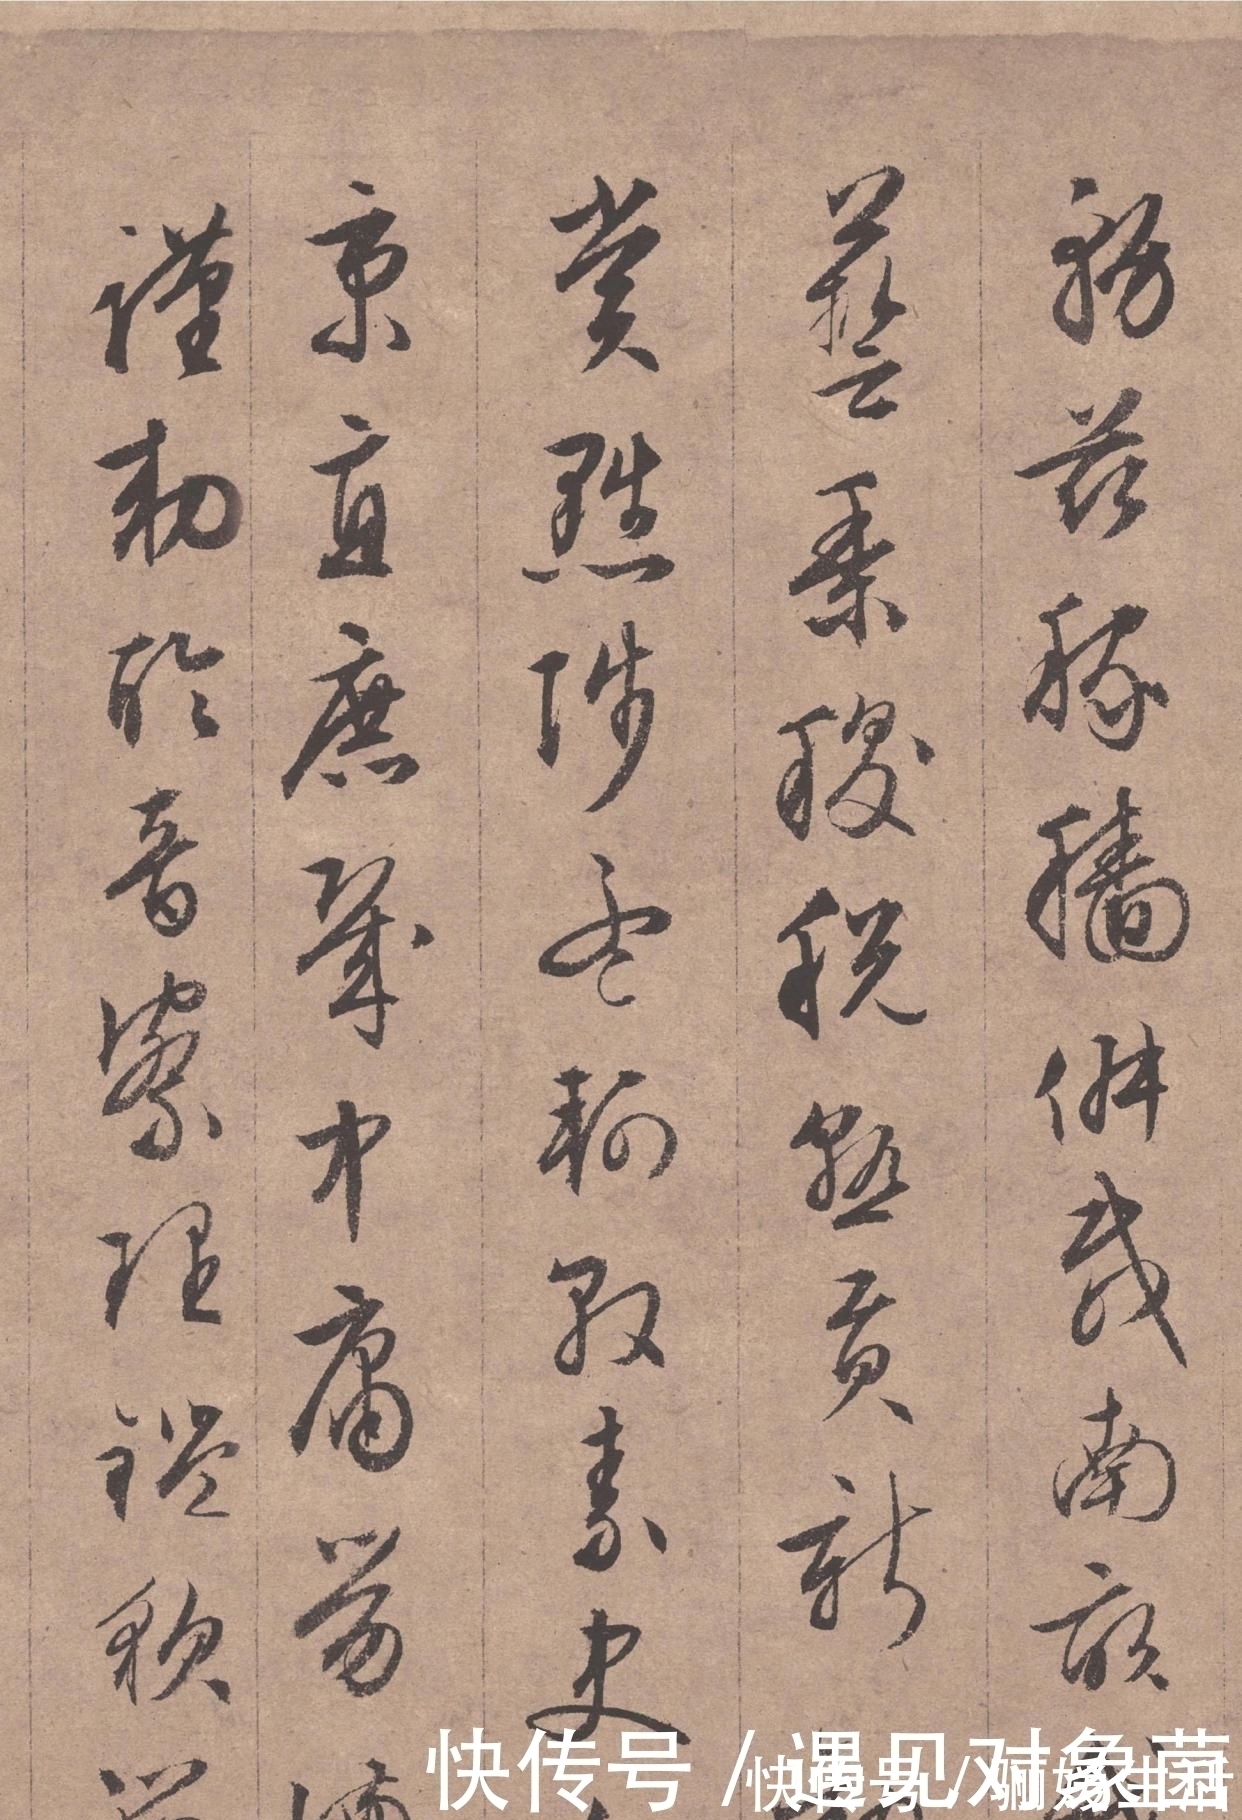 務茲稼穡俶載南畝
藝黍稷稅熟貢新
賞黜陟孟軻敦素史
秉直庶幾中庸勞謙
謹勅聆音察理鑑貌
快传号 / 遇见对象菌
快传号 / 生活